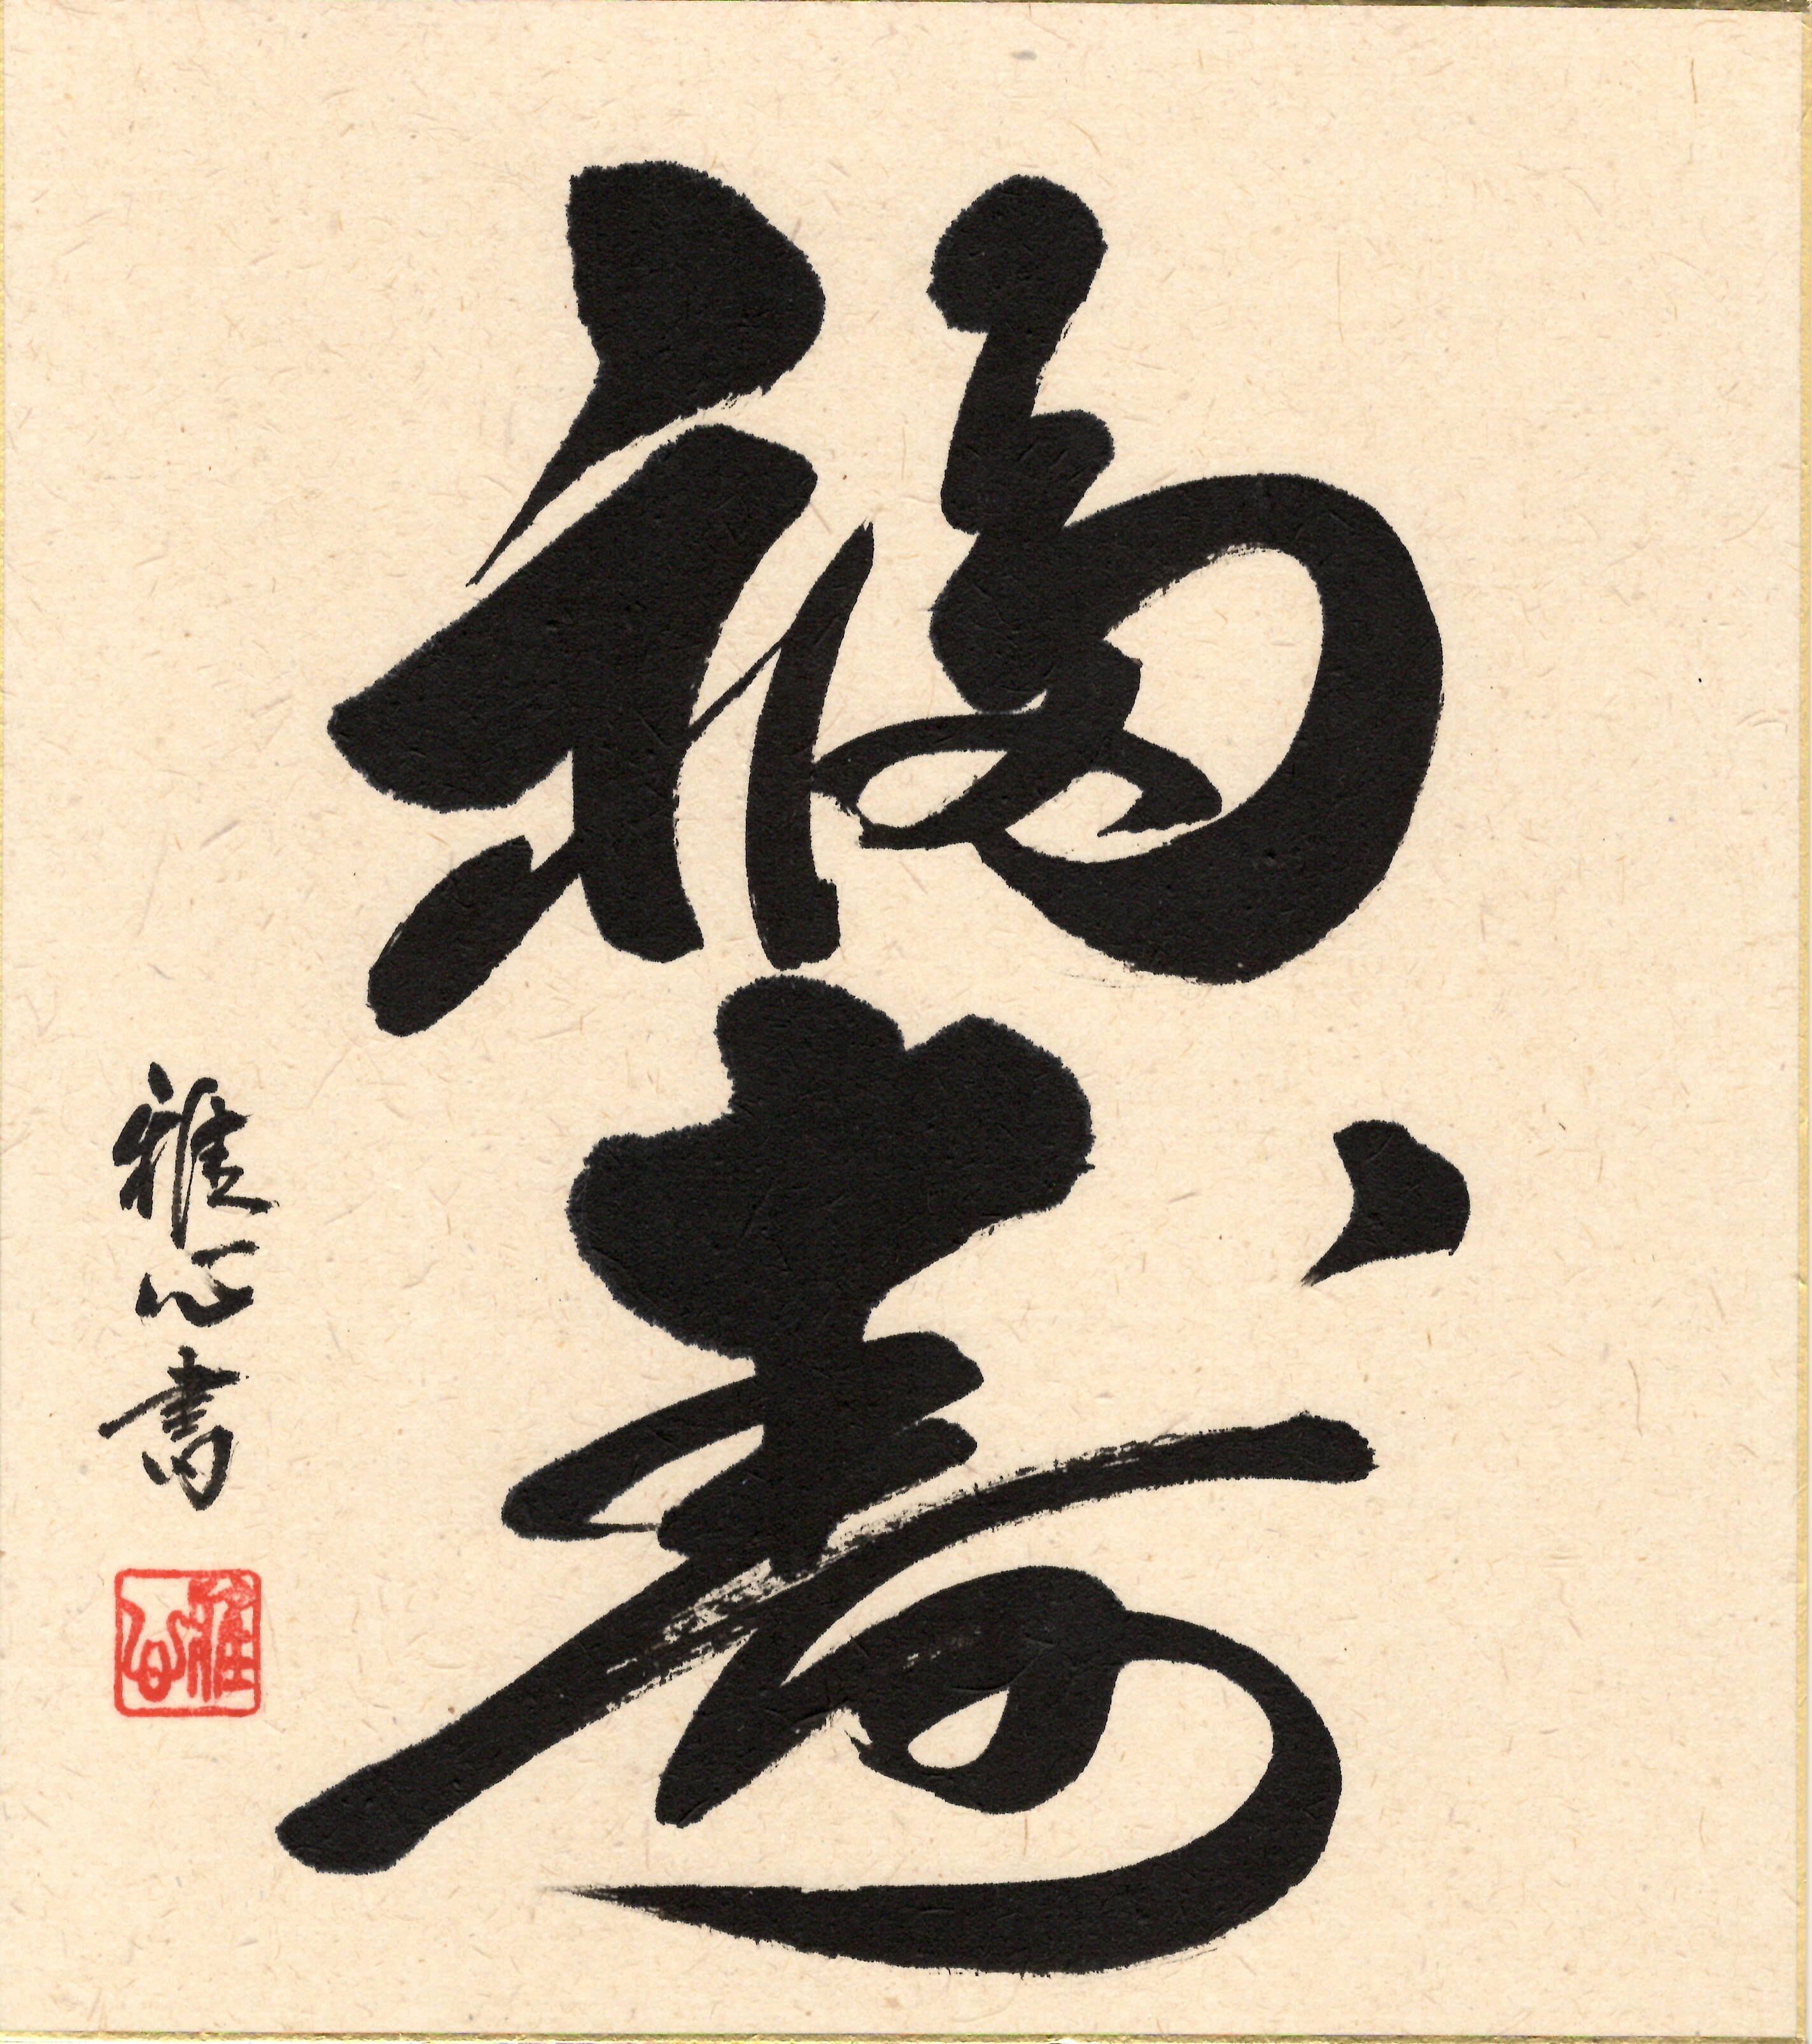 福寿
雅心書
雅心